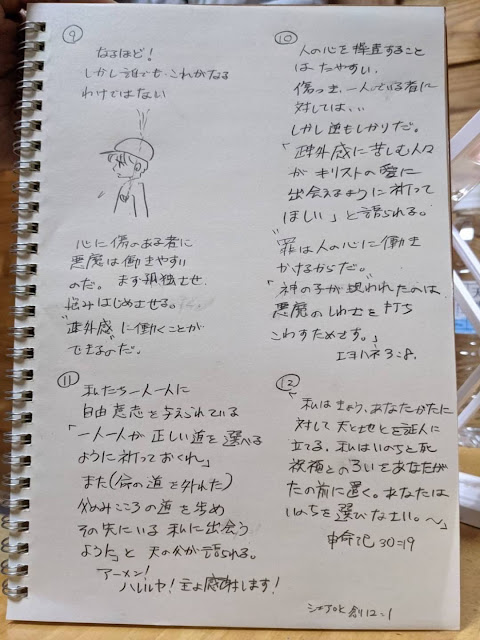 ⑨
なるほど!
しかし誰でも、これがなる
わけではない
心に傷のある者に
悪魔は働きやすい
のだ。まず孤独させ、
悩みはじめさせる。
"疎外感"に働くことが
できるのだ。
⑩
人の心を操縦すること
はたやすい。
傷つき、一人でいる者に
対しては、、
しかし逆もしかりだ。
「疎外感に苦しむ人々
がキリストの愛に
出会えるように祈って
ほしい」と語られる。
"罪は人の心に働き
かけるからだ。"
「神の子が現われたのは
悪魔のしわざを打ち
こわすためです。」
Iヨハネ3:8.
⑪
私たち一人一人に
自由意志を与えられている
「一人一人が正しい道を選べる
ように祈っておくれ」
また(命の道を外れた)
父のみこころの道を歩め
その先にいる私に出会う
ように」と天の父が語られる。
アーメン!
ハレルヤ!主よ感謝します!
⑫
「私はきょう、あなたがたに
対して天と地とを証人に
立てる。私はいのちと死
祝福とのろいをあなたが
たの前に置く。あなたは
いのちを選びなさい。~」
申命記30:19
創12:1